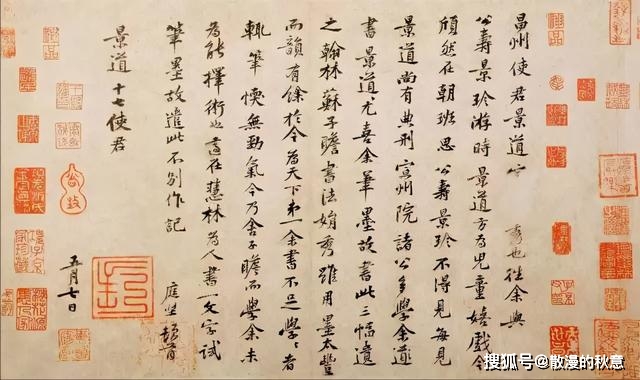 昌州使君景道宗秀也往余與
公壽景珍游時景道方為兒童嬉戲今
頎然在朝班思公壽景珍不得見每見
景道尚有典刑宣州院諸公多學余
書景道尤喜余筆墨故書此三幅遺
之翰林蘇子瞻書法娟秀雖用墨太豐
而韻有餘於今為天下第一余書不足學學者
輒筆愞無勁氣今乃舍子瞻而學余未
為能擇術也適在慧林為人書一文字試
筆墨故遣此不別作記
庭堅頓首
景道十七使君
五月七日
搜狐号@散漫的秋意